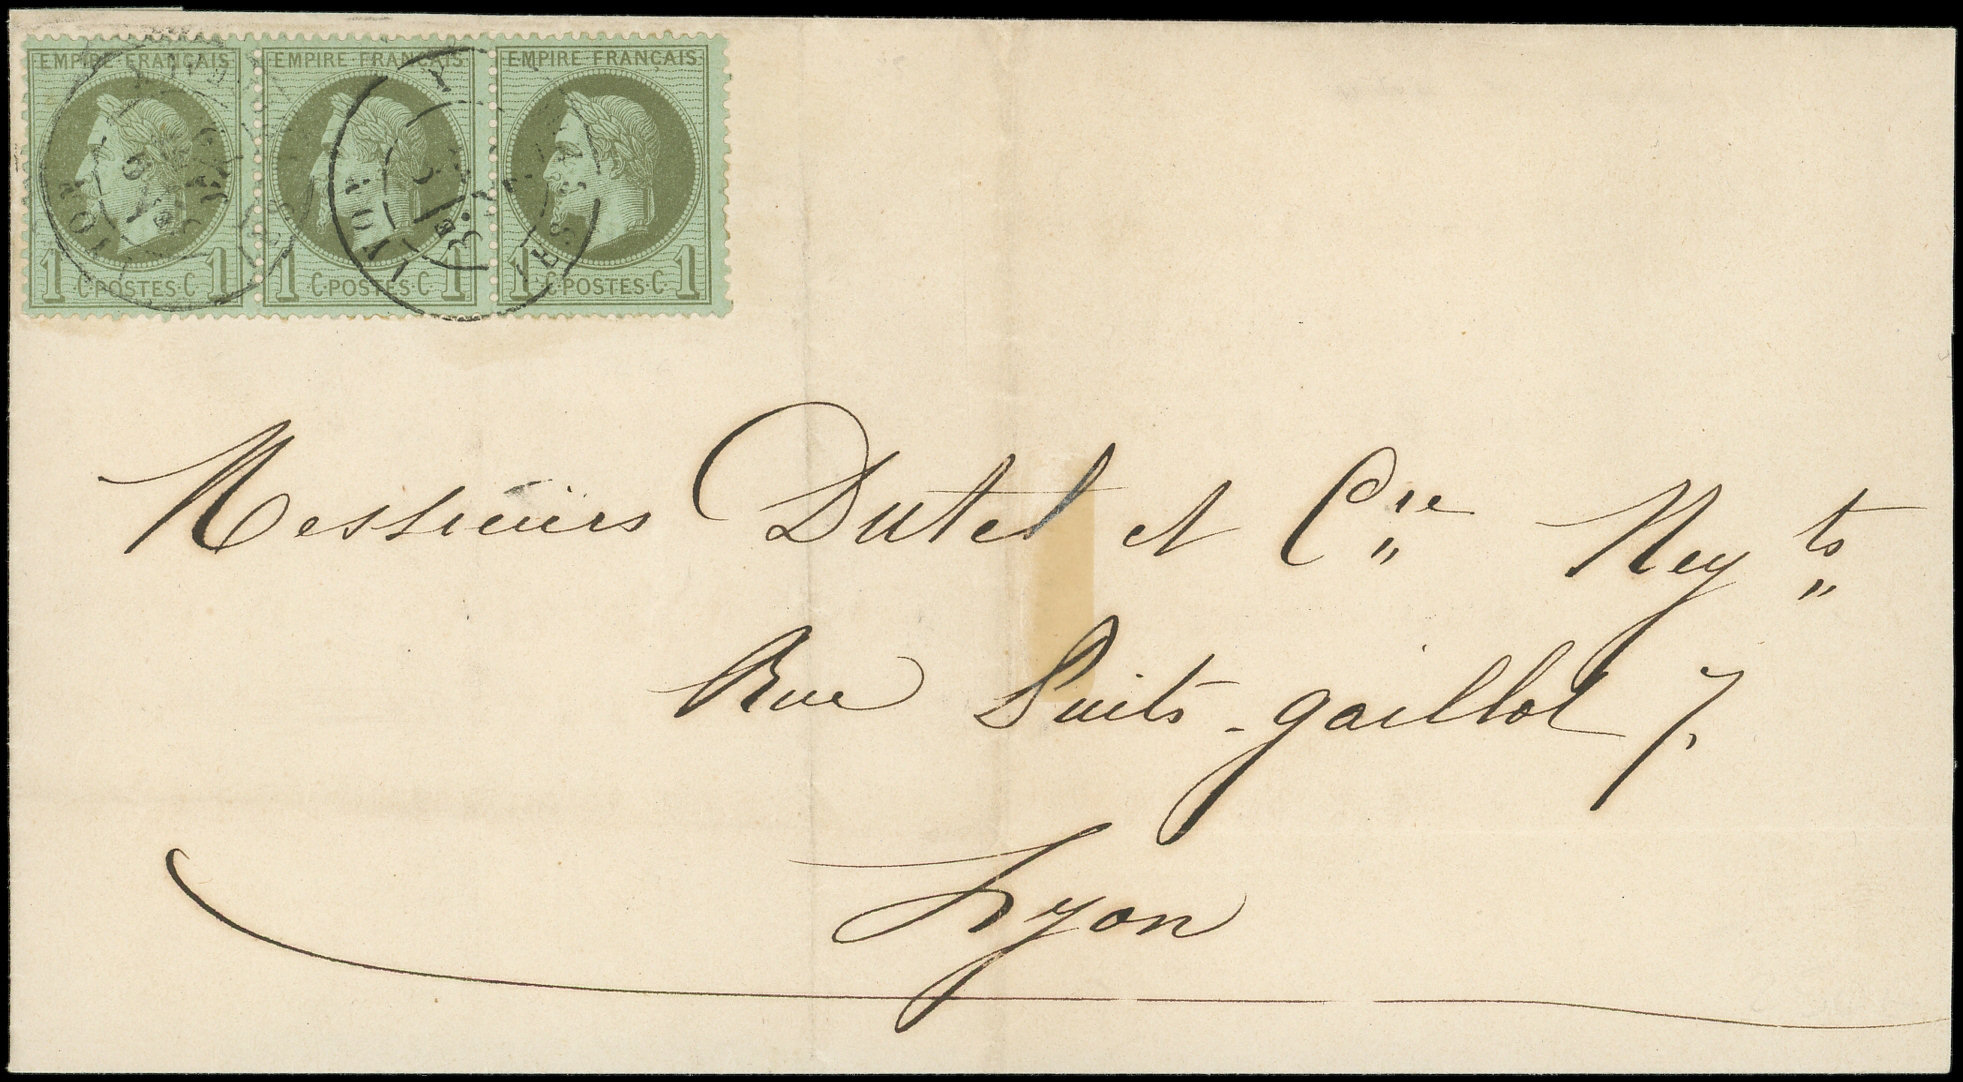 EMPIRE FRANÇAIS EMPIRE FRANÇAIS EMPIRE FRANÇAIS
1 C·POSTES·C 1 1 C·POSTES·C 1 1 C·POSTES·C 1
LYON
Messieurs Dutel et Cie Neyts
Rue Puits-gaillot 7.
Lyon